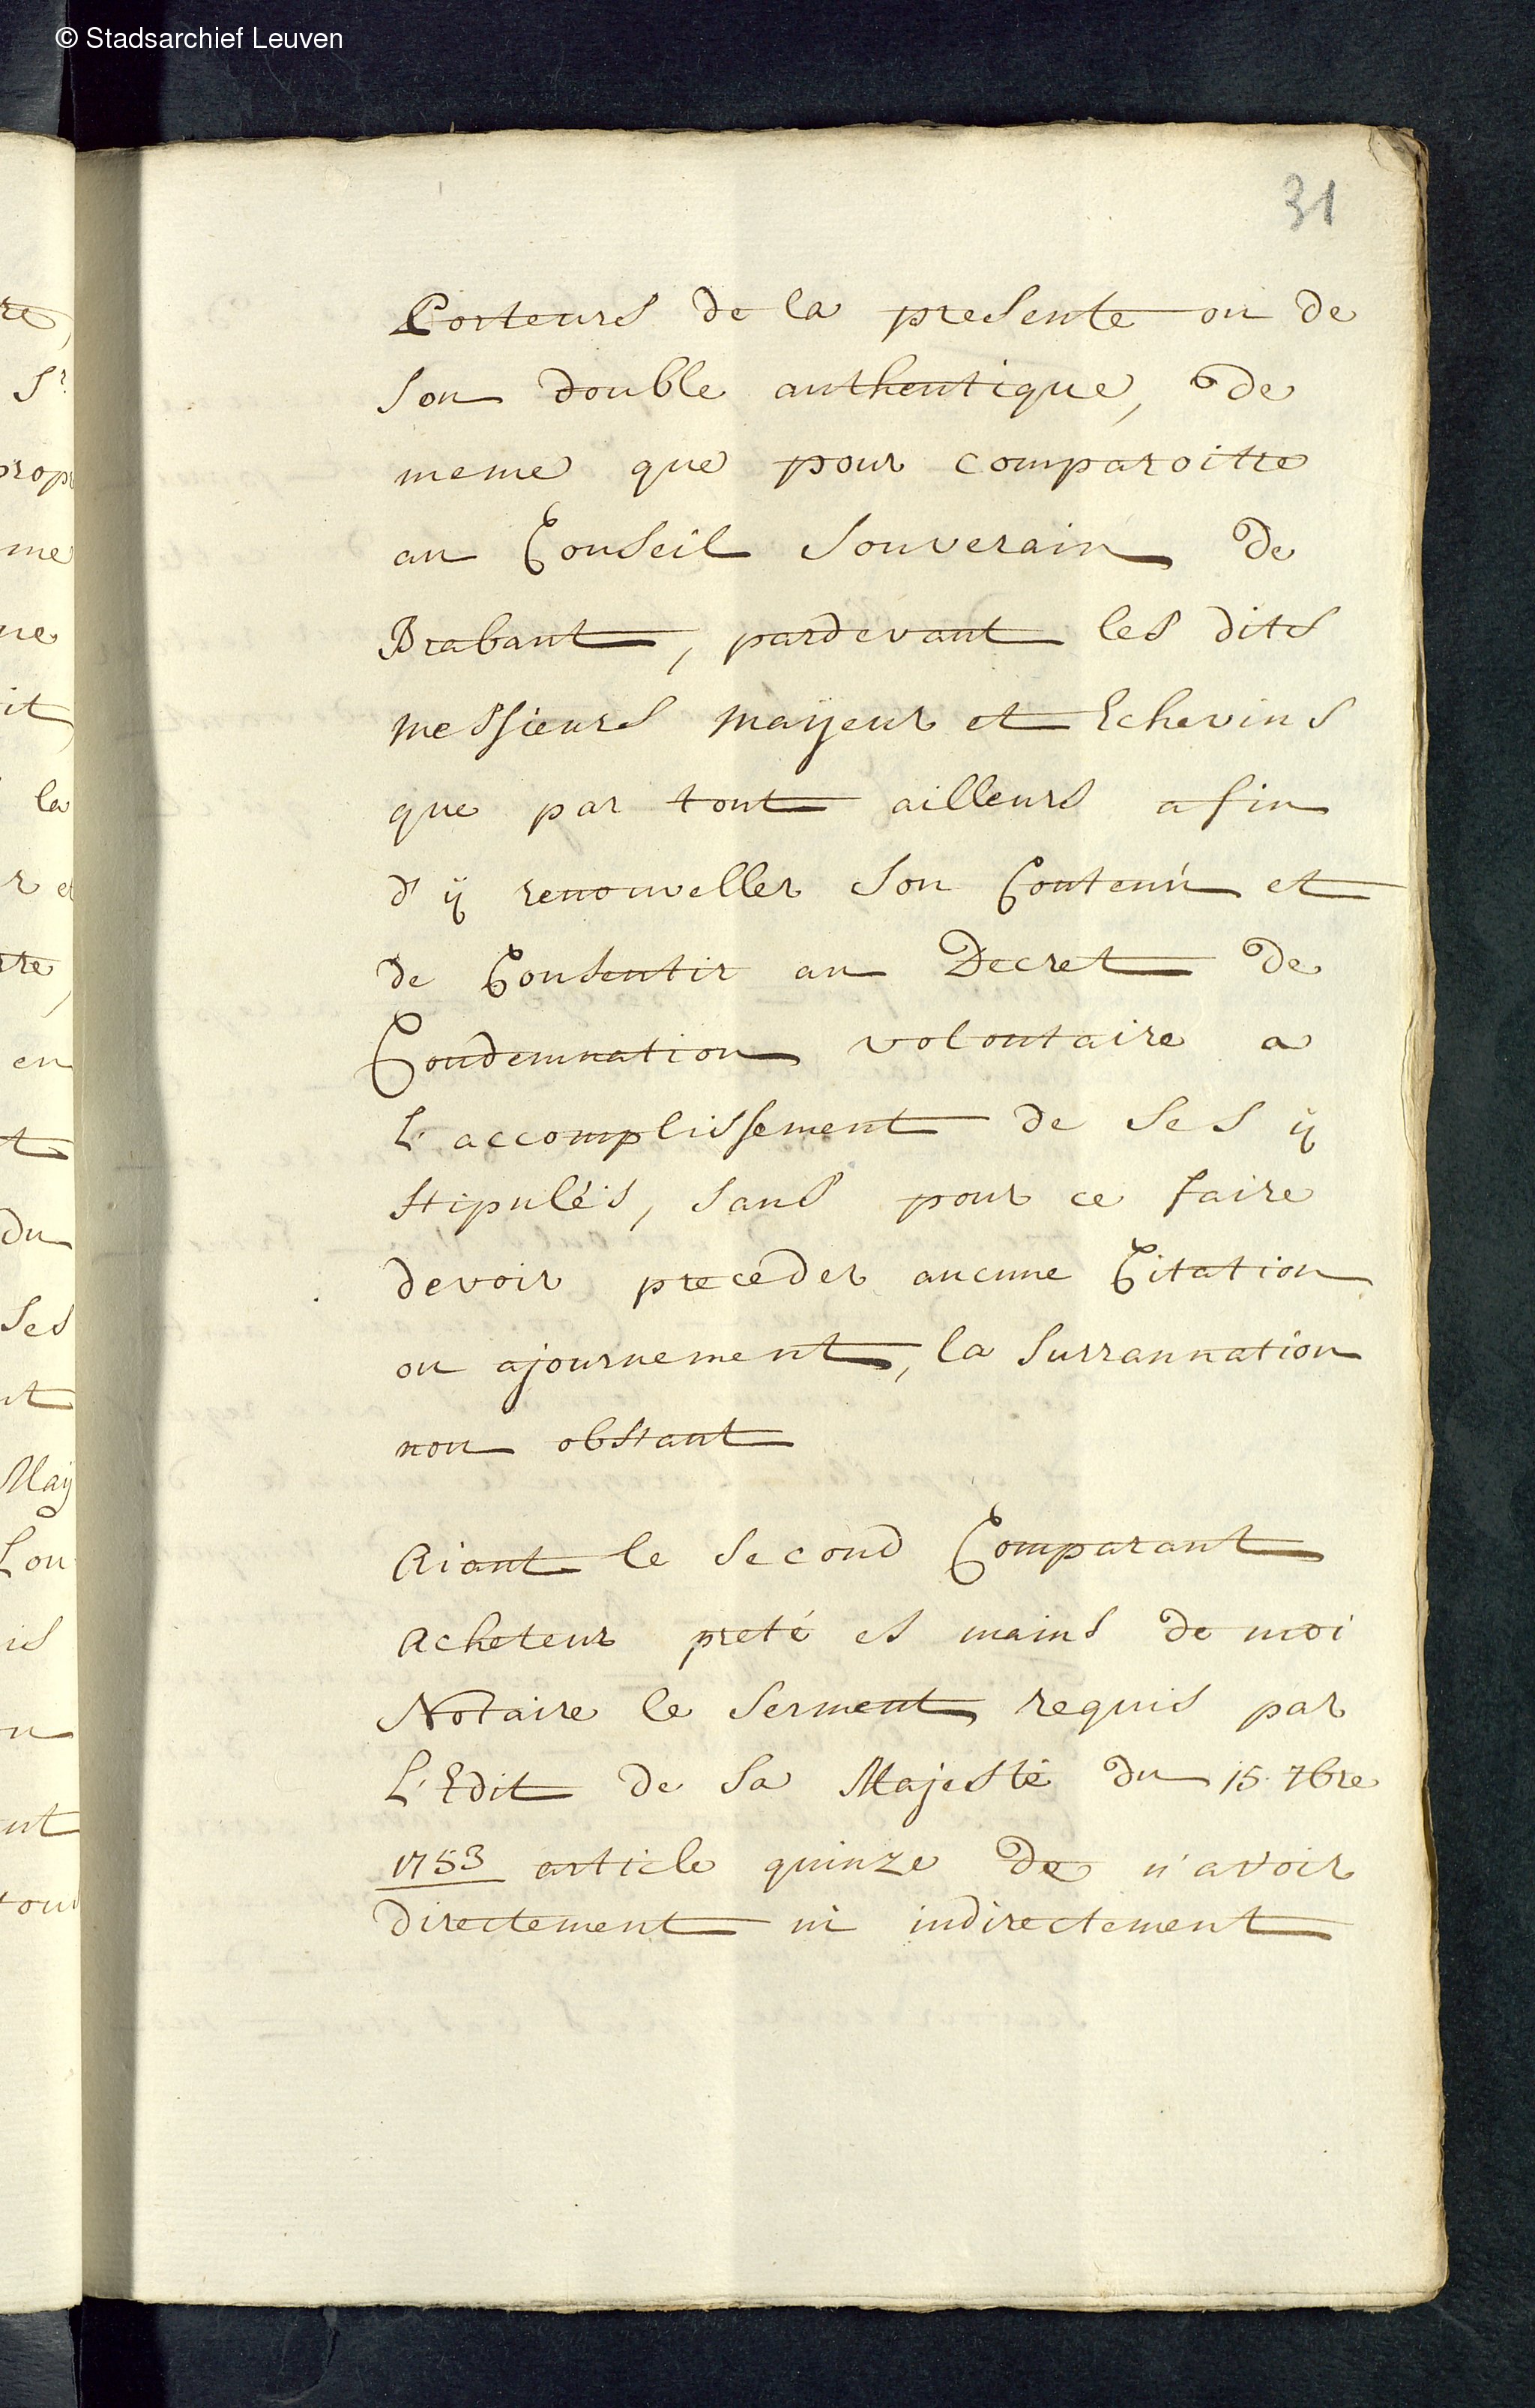 © Stadsarchief Leuven
31
Porteurs de la presente ou de
son double authentique, de
meme que pour comparoitre
au Conseil souverain de
Brabant, pardevant les dits
messieurs mayeur et Echevins
que par tout ailleurs afin
d'ÿ renouveller son Contenu et
de Consentir au Decret de
Condemnation volontaire a
L'accomplissement de ses ÿ
stipulés, sans pour ce faire
devoir preceder aucune Citation
ou ajournement, la surrannation
non obstant
Aiant le second Comparant
Acheteur preté es mains de moi
Notaire le serment requis par
L'Edit de sa Majesté du 15 7bre
1753 article quinze de n'avoir
directement ni indirectement